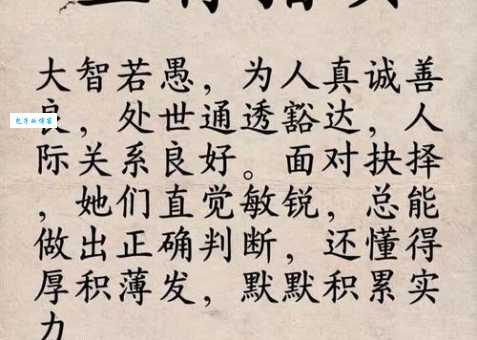 大智若愚，为人真诚善
良，处世通透豁达，人
包子的博客
际关系良好。面对抉择
，她们直觉敏锐，总能
做出正确判断，还懂得
厚积薄发，默默积累实
力